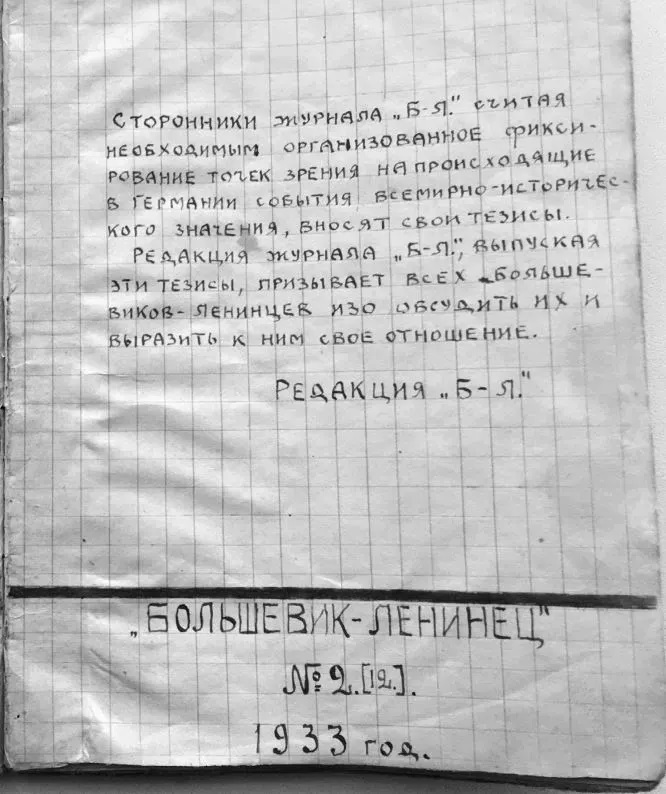 СТОРОННИКИ ЖУРНАЛА „Б-Л." СЧИТАЯ
НЕОБХОДИМЫМ ОРГАНИЗОВАННОЕ ФИКСИ-
РОВАНИЕ ТОЧЕК ЗРЕНИЯ НА ПРОИСХОДЯЩИЕ
В ГЕРМАНИИ СОБЫТИЯ ВСЕМИРНО-ИСТОРИЧЕС-
КОГО ЗНАЧЕНИЯ, ВНОСЯТ СВОИ ТЕЗИСЫ.
РЕДАКЦИЯ ЖУРНАЛА „Б-Л.", ВЫПУСКАЯ
ЭТИ ТЕЗИСЫ, ПРИЗЫВАЕТ ВСЕХ БОЛЬШЕ-
ВИКОВ-ЛЕНИНЦЕВ ИЗО ОБСУДИТЬ ИХ И
ВЫРАЗИТЬ К НИМ СВОЕ ОТНОШЕНИЕ.
РЕДАКЦИЯ „Б-Л."
„БОЛЬШЕВИК-ЛЕНИНЕЦ"
№ 2.[12.].
1933 год.